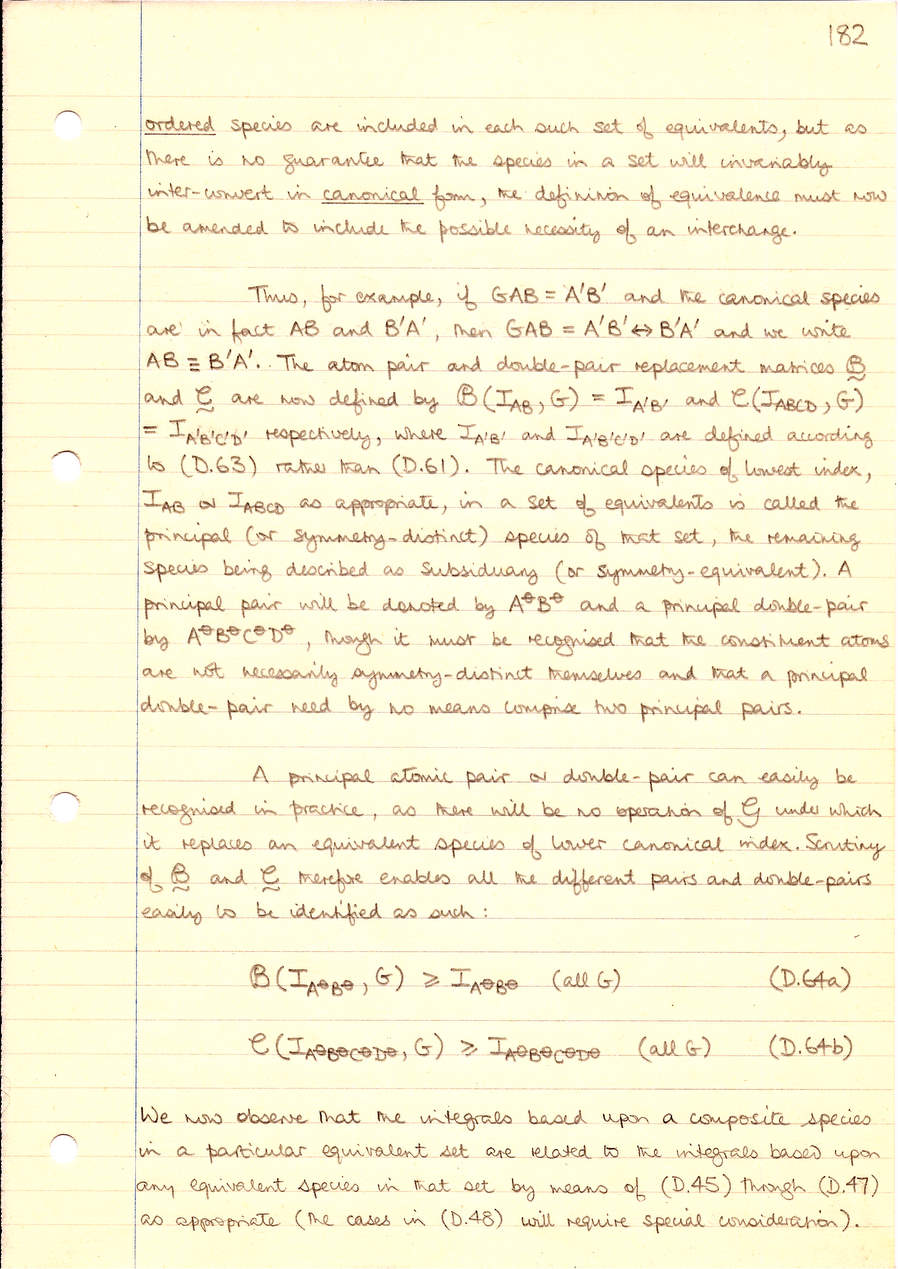 182
ordered species are included in each such set of equivalents, but as
there is no guarantee that the species in a set will invariably
inter-convert in canonical form, the definition of equivalence must now
be amended to include the possible necessity of an interchange.
Thus, for example, if GAB = A′B′ and the canonical species
are in fact AB and B′A′, then GAB = A′B′ ↔ B′A′ and we write
AB ≡ B′A′. The atom pair and double-pair replacement matrices B
and C are now defined by B(I_AB, G) = I_A′B′ and C(I_ABCD, G)
= I_A′B′C′D′ respectively, where I_A′B′ and I_A′B′C′D′ are defined according
to (D.63) rather than (D.61). The canonical species of lowest index,
I_AB or I_ABCD as appropriate, in a set of equivalents is called the
principal (or symmetry-distinct) species of that set, the remaining
species being described as subsiduary (or symmetry-equivalent). A
principal pair will be denoted by A^⊖B^⊖ and a principal double-pair
by A^⊖B^⊖C^⊖D^⊖, though it must be recognised that the constituent atoms
are not necessarily symmetry-distinct themselves and that a principal
double-pair need by no means comprise two principal pairs.
A principal atomic pair or double-pair can easily be
recognised in practice, as there will be no operation of G under which
it replaces an equivalent species of lower canonical index. Scrutiny
of B and C therefore enables all the different pairs and double-pairs
easily to be identified as such:
B(I_A⊖B⊖, G) ⩾ I_A⊖B⊖ (all G) (D.64a)
C(I_A⊖B⊖C⊖D⊖, G) ⩾ I_A⊖B⊖C⊖D⊖ (all G) (D.64b)
We now observe that the integrals based upon a composite species
in a particular equivalent set are related to the integrals based upon
any equivalent species in that set by means of (D.45) through (D.47)
as appropriate (the cases in (D.48) will require special consideration).